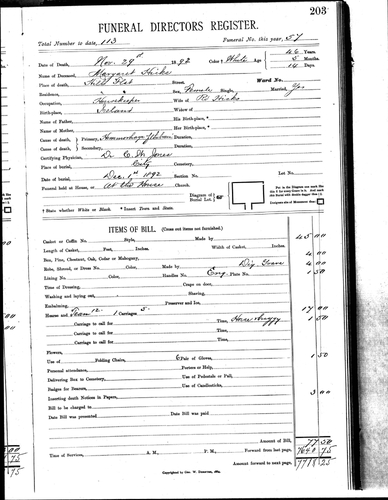 203
FUNERAL DIRECTORS REGISTER.
Total Number to date, 113 Funeral No. this year, 57
Date of Death, Nov. 29th 1892 Color † White Age 46 Years
5 Months
Name of Deceased, Margaret Hicks 14 Days
Place of death, Hill Flat Street. Ward No.
Residence, " " Sex, Female Single, Married, Yes
Occupation, Housekeeper Wife of R. Hicks
Birthplace, Ireland Widow of
Name of Father, His Birthplace, *
Name of Mother, Her Birthplace, *
Cause of death: Primary, Duration,
Cause of death: Secondary, Duration,
Certifying Physician, Dr. C. W. Jones
Place of burial, City
Date of burial, Dec. 1st 1892 Section No. Lot No.
Funeral held at House, or At the House Church. Diagram of Burial Lot.
† State whether White or Black. * Insert Town and State.
ITEMS OF BILL. (Cross out items not furnished.)
Casket or Coffin No. Style, 45 00
Length of Casket, Feet, Inches. Width of Casket, Inches.
Box, Pine, Chestnut, Oak, Cedar or Mahogany, 4 00
Robe, Shroud, or Dress No. Color, Made by Dig Grave 4 00
Lining No. Color, Handles on Eng. Plate No. 1 50
Time of Dressing, Crape on Door,
Washing and laying out, Shaving,
Embalming, Preserver and Ice,
Hearse and Team 12. 1 Carriages 5. 17 00
Carriage to call for Time, Horse Buggy 1 50
Carriage to call for Time,
Carriage to call for Time,
Flowers,
Use of Folding Chairs, 6 Pair of Gloves, 1 50
Personal attendance, Porters or Help,
Delivering Box to Cemetery, Use of Pedestals or Pall,
Badges for Bearers, Use of Candlesticks,
Inserting death Notices in Papers, 3 00
Bill to be charged to
Date Bill was presented Date Bill paid
Amount of Bill, 77 50
Time of Services, A. M., P. M., Forward from last page,
Amount forward to next page,